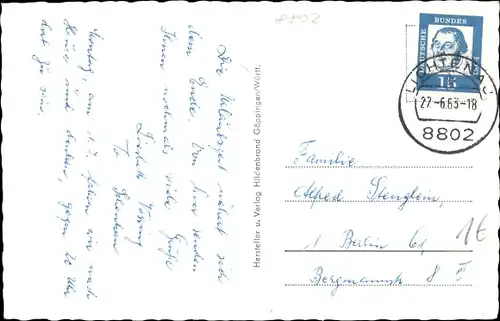 8802
Die Urlaubszeit nähert sich
dem Ende. Von hier senden
Ihnen nochmals viele Grüße
Montag, am 1.7. fahren wir nach
Hause und denken, gegen 20 Uhr
dort zu sein.
Hersteller u. Verlag Hildenbrand Göppingen/Württ.
DEUTSCHE BUNDES
15
LICHTENAU
27.-6.63-18
8802
Familie
Alfred Stenglein,
1 Berlin 61,
Bergmannstr. 8 II
1€